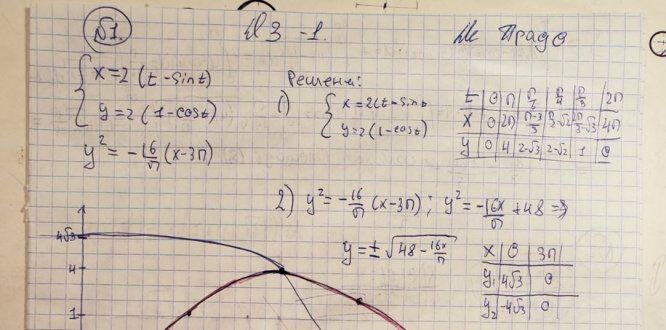 №1. ДЗ -1. Де Прадо
{ x=2(t-sint)
y=2(1-cost)
y²=-16/π(x-3π)
Решение:
1) { x=2(t-sint
y=2(1-cost)
t 0 π π/2 π/4 π/3 2π
x 0 2π 4π
y 0 4 2-√3 2-√2 1 0
2) y²=-16/π(x-3π); y²=-16x/π+48 =>
y=±√48-16x/π
x 0 3π
y₁ 4√3 0
y₂ -4√3 0
4√3
4
1